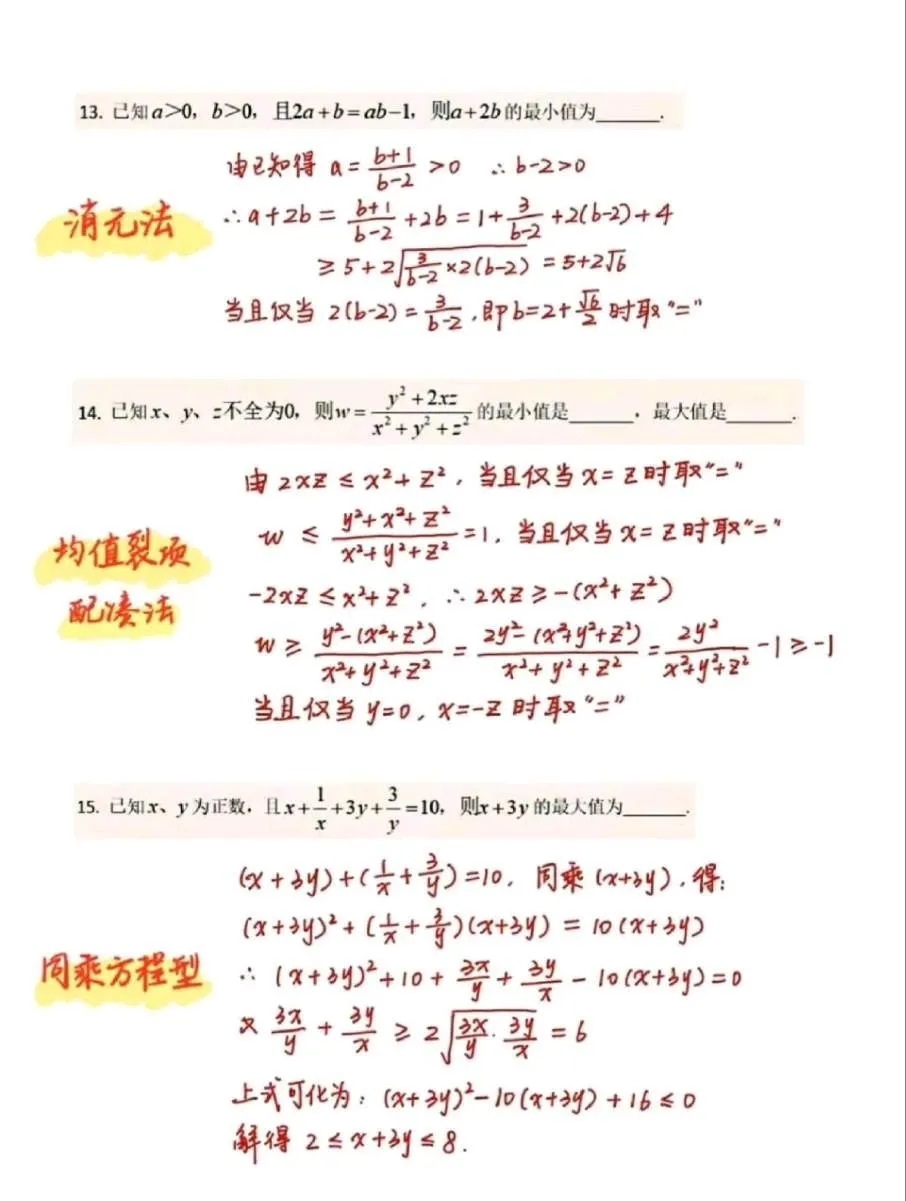 13. 已知a>0，b>0，且2a+b=ab−1，则a+2b的最小值为______.
由已知得 a = \frac{b+1}{b-2} > 0 ∴ b-2>0
消元法
∴ a+2b = \frac{b+1}{b-2} + 2b = 1 + \frac{3}{b-2} + 2(b-2) + 4
≥ 5 + 2\sqrt{\frac{3}{b-2} × 2(b-2)} = 5+2\sqrt{6}
当且仅当 2(b-2) = \frac{3}{b-2}，即b=2+\frac{\sqrt{6}}{2} 时取"="
14. 已知x、y、z不全为0，则w=\frac{y^2+2xz}{x^2+y^2+z^2}的最小值是______，最大值是______.
由 2xz ≤ x²+z²，当且仅当 x=z时取"="
w ≤ \frac{y²+x²+z²}{x²+y²+z²} = 1，当且仅当 x=z时取"="
均值裂项
配凑法
-2xz ≤ x²+z²，∴ 2xz ≥ -(x²+z²)
w ≥ \frac{y²-(x²+z²)}{x²+y²+z²} = \frac{2y²-(x²+y²+z²)}{x²+y²+z²} = \frac{2y²}{x²+y²+z²} -1 ≥ -1
当且仅当 y=0，x=-z 时取"="
15. 已知x、y为正数，且x+\frac{1}{x}+3y+\frac{3}{y}=10，则x+3y的最大值为______.
(x+3y)+(\frac{1}{x}+\frac{3}{y})=10，同乘(x+3y)，得：
(x+3y)²+(\frac{1}{x}+\frac{3}{y})(x+3y) = 10(x+3y)
同乘方程型
∴ (x+3y)²+10+\frac{3x}{y}+\frac{3y}{x}-10(x+3y)=0
又 \frac{3x}{y}+\frac{3y}{x} ≥ 2\sqrt{\frac{3x}{y}·\frac{3y}{x}} = 6
上式可化为：(x+3y)²-10(x+3y)+16≤0
解得 2≤x+3y≤8.